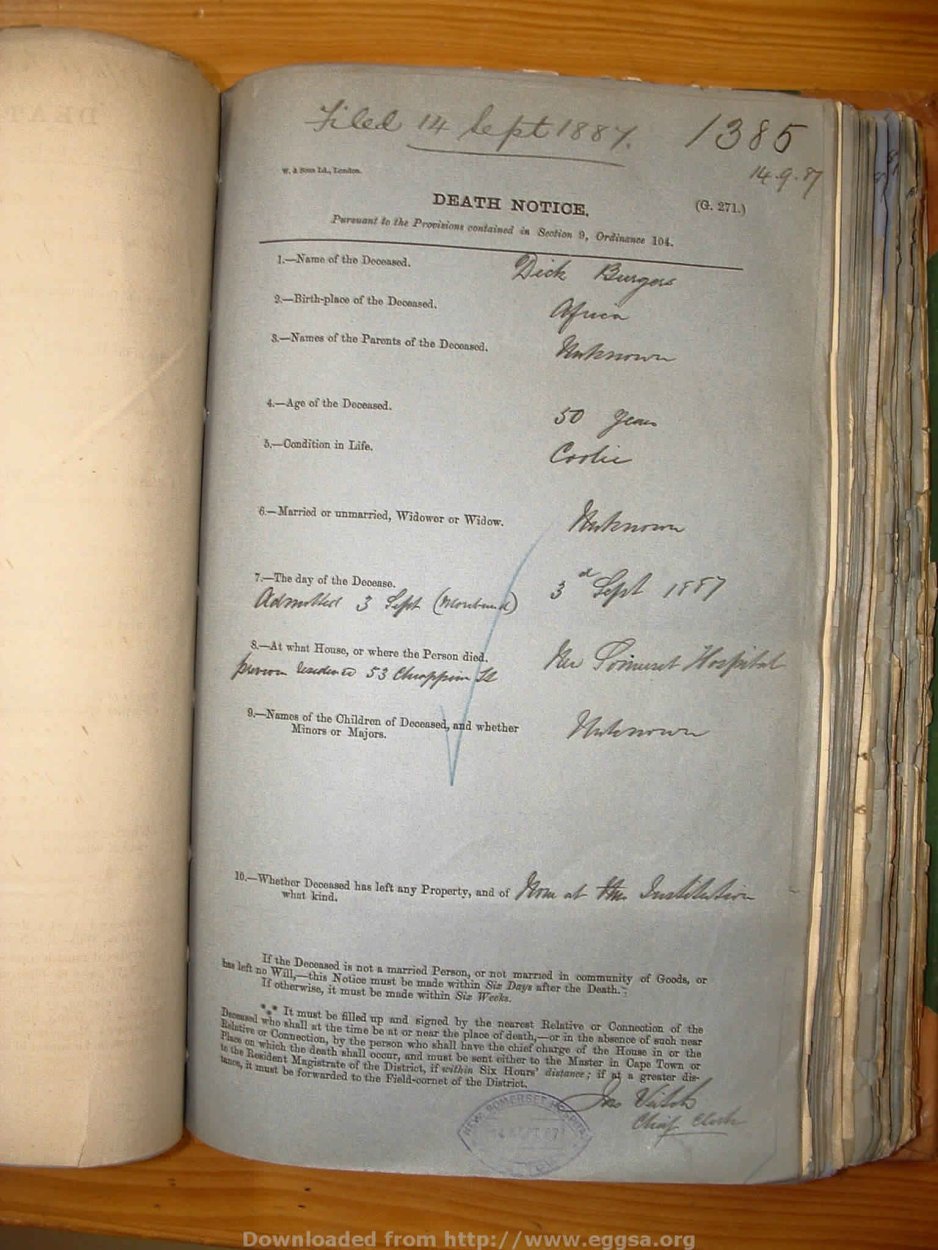 Filed 14 Sept 1887. 1385
14.9.87
W. & Sons Ld., London.
DEATH NOTICE, (G. 271.)
Pursuant to the Provisions contained in Section 9, Ordinance 104.
1.—Name of the Deceased. Dick Burgess
2.—Birth-place of the Deceased. Africa
3.—Names of the Parents of the Deceased. Unknown
4.—Age of the Deceased. 50 Years
5.—Condition in Life. Coolie
6.—Married or unmarried, Widower or Widow. Unknown
7.—The day of the Decease. 3d Sept 1887
Admitted 3 Sept (Moribund)
8.—At what House, or where the Person died. New Somerset Hospital
residence 53 Chiappini St
9.—Names of the Children of Deceased, and whether
Minors or Majors. Unknown
10.—Whether Deceased has left any Property, and of
what kind. None at this Institution
If the Deceased is not a married Person, or not married in community of Goods, or
has left no Will,—this Notice must be made within Six Days after the Death.
If otherwise, it must be made within Six Weeks.
*** It must be filled up and signed by the nearest Relative or Connection of the
Deceased who shall at the time be at or near the place of death,—or in the absence of such near
Relative or Connection, by the person who shall have the chief charge of the House in or the
Place on which the death shall occur, and must be sent either to the Master in Cape Town or
to the Resident Magistrate of the District, if within Six Hours' distance; if at a greater dis-
tance, it must be forwarded to the Field-cornet of the District.
Jno Veitch
Chief Clerk
NEW SOMERSET HOSPITAL
SEPT 87
Downloaded from http://www.eggsa.org